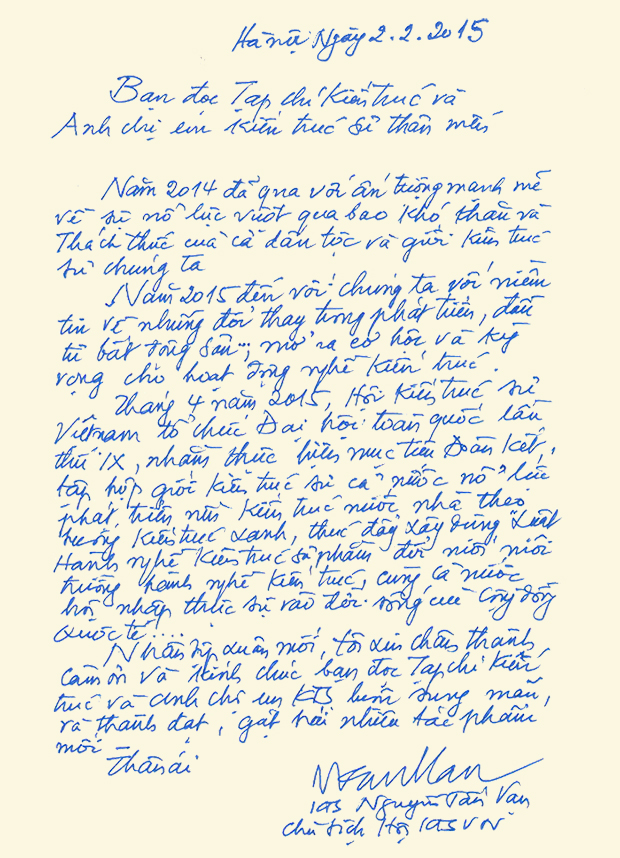 Hà nội Ngày 2.2.2015
Bạn đọc Tạp chí Kiến trúc và
Anh chị em Kiến trúc sư thân mến
Năm 2014 đã qua với ấn tượng mạnh mẽ
về sự nỗ lực vượt qua bao khó khăn và
Thách thức của cả dân tộc và giới Kiến trúc
sư chúng ta
Năm 2015 đến với chúng ta với niềm
tin về những đổi thay trong phát triển, đầu
tư bất động sản..., mở ra cơ hội và kỳ
vọng cho hoạt động nghề Kiến trúc.
Tháng 4 năm 2015, Hội Kiến trúc sư
Việt nam tổ chức Đại hội toàn quốc lần
thứ IX, nhằm thực hiện mục tiêu Đoàn kết,
tập hợp giới Kiến trúc sư cả nước nỗ lực
phát triển nền Kiến trúc nước nhà theo
hướng Kiến trúc xanh, thúc đẩy xây dựng "Luật
Hành nghề Kiến trúc sư" nhằm đổi mới môi
trường hành nghề Kiến trúc, cùng cả nước
hội nhập thực sự vào đời sống của cộng đồng
Quốc tế!....
Nhân dịp xuân mới, tôi xin chân thành
cảm ơn và kính chúc bạn đọc Tạp chí Kiến
trúc và anh chị em KTS luôn sung mãn,
và thành đạt, gặt hái nhiều tác phẩm
mới
Thân ái
KTS Nguyễn Tấn Vạn
Chủ tịch Hội KTS VN